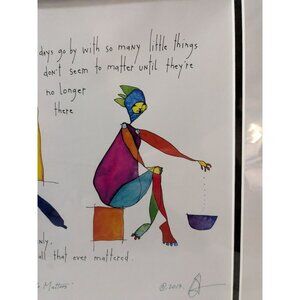 days go by with so many little things
don't seem to matter until they're
no longer
there
only,
all that ever mattered.
Matters"
© 2013.